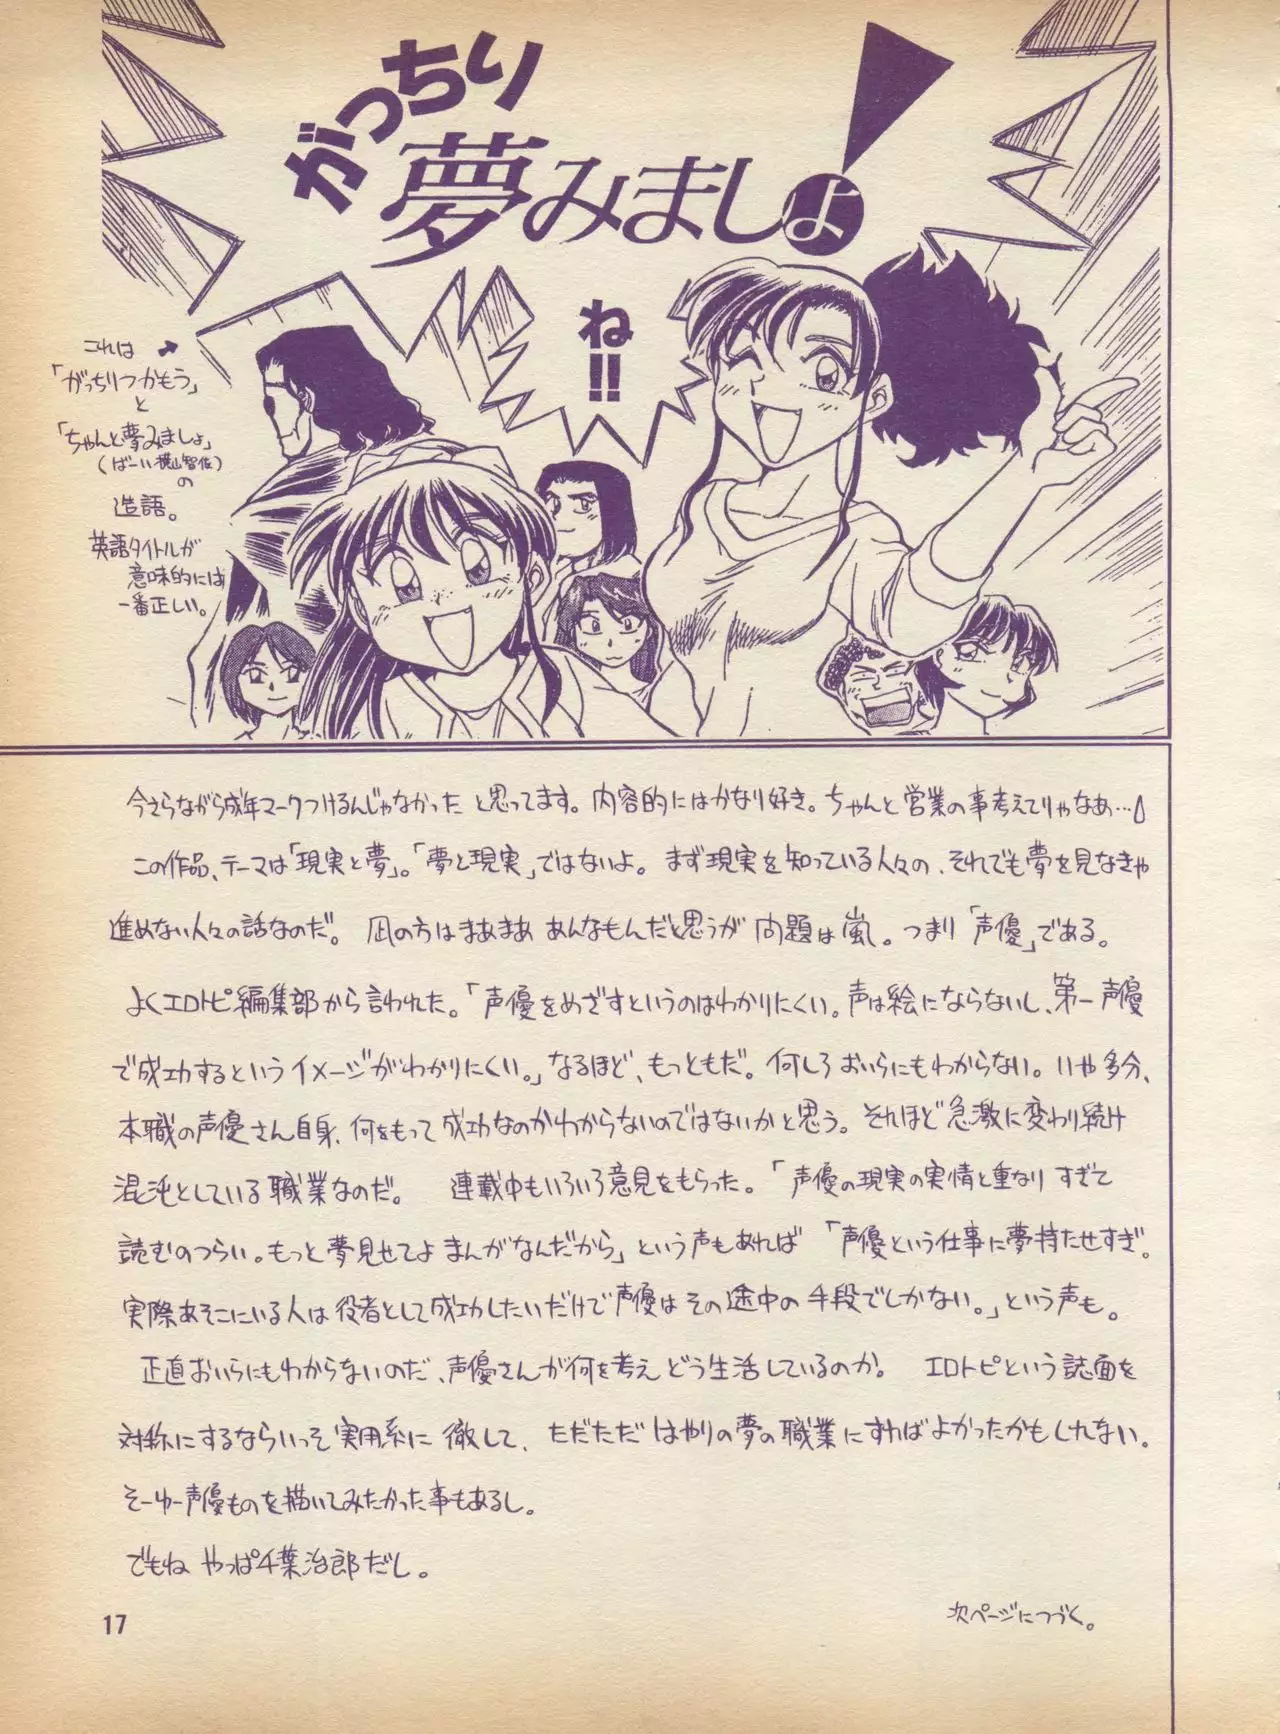 がっちり
夢みましょ!
ね!!
これは
「がっちりつかもう」
と
「ちゃんと夢みましょ」
(ばーい横山智佐)
の
造語。
英語タイトルが
意味的には
一番正しい。
今さらながら成年マークつけるんじゃなかったと思ってます。内容的にはかなり好き。ちゃんと営業の事考えてりゃなあ…
この作品、テーマは「現実と夢」。「夢と現実」ではないよ。まず現実を知っている人々の、それでも夢を見なきゃ
進めない人々の話なのだ。凪の方はまあまああんなもんだと思うが問題は嵐。つまり「声優」である。
よくエロトピ編集部から言われた。「声優をめざすというのはわかりにくい。声は絵にならないし、第一声優
で成功するというイメージがわかりにくい。」なるほど、もっともだ。何しろおいらにもわからない。いや多分、
本職の声優さん自身、何をもって成功なのかわからないのではないかと思う。それほど急激に変わり続け
混沌としている職業なのだ。 連載中もいろいろ意見をもらった。「声優の現実の実情と重なりすぎて
読むのつらい。もっと夢見せてよまんがなんだから」という声もあれば「声優という仕事に夢持たせすぎ。
実際あそこにいる人は役者として成功したいだけで声優はその途中の手段でしかない。」という声も。
正直おいらにもわからないのだ、声優さんが何を考えどう生活しているのか。 エロトピという誌面を
対称にするならいっそ実用系に徹して、ただただはやりの夢の職業にすればよかったかもしれない。
そーゆー声優ものを描いてみたかった事もあるし。
でもねやっぱ千葉治郎だし。
次ページにつづく。
17